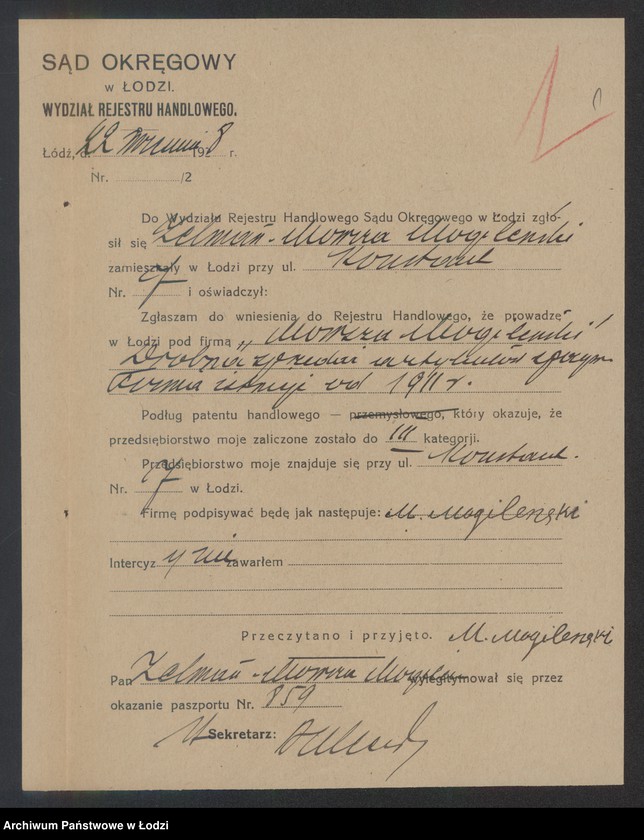 SĄD OKRĘGOWY
w ŁODZI.
WYDZIAŁ REJESTRU HANDLOWEGO.
Łódź, d. 22 192 8 r.
Nr. /2
Do Wydziału Rejestru Handlowego Sądu Okręgowego w Łodzi zgło-
sił się Zelman-Mowsza Mogileński
zamieszkały w Łodzi przy ul. Konstant
Nr. 7 i oświadczył:
Zgłaszam do wniesienia do Rejestru Handlowego, że prowadzę
w Łodzi pod firmą „Mowsza Mogileński"
Drobna sprzedaż artykułów spożyw
Firma istnieje od 1911 r.
Podług patentu handlowego — przemysłowego, który okazuje, że
przedsiębiorstwo moje zaliczone zostało do III kategorji.
Przedsiębiorstwo moje znajduje się przy ul. Konstant.
Nr. 7 w Łodzi.
Firmę podpisywać będę jak następuje: M. Mogilenski
Intercyzy nie zawarłem
Przeczytano i przyjęto. M. Mogilenski
Pan Zelman-Mowsza wylegitymował się przez
okazanie paszportu Nr. 859
Sekretarz:
Archiwum Państwowe w Łodzi